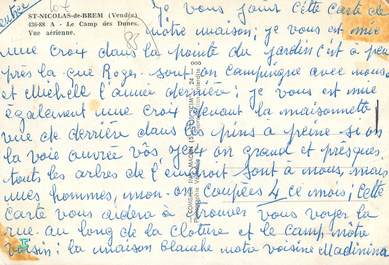 ST-NICOLAS-de-BREM (Vendée)
436-88 A - Le Camp des Dunes.
Vue aérienne.
85
Je vous joint cette carte de
notre maison; je vous est mie
une croix dans la pointe du jardin c'est a peu
près la que Roger - sont en campigne avec nous
et Michèle l'année dernière; Je vous est mie
également une croix devant la maisonnette
vue de derrière dans les pins a peine - si on
la voie ouvrée vos je 4 en grand et presques
toutes les arbres de l'endroit sont à nous, mais
mes hommes, mon on coupées 4 ce mois; Cette
carte vous aidera à trouver vous voyer la
rue au long de la cloture et le camp notre
voisin; la maison blanche notre voisine Madinina